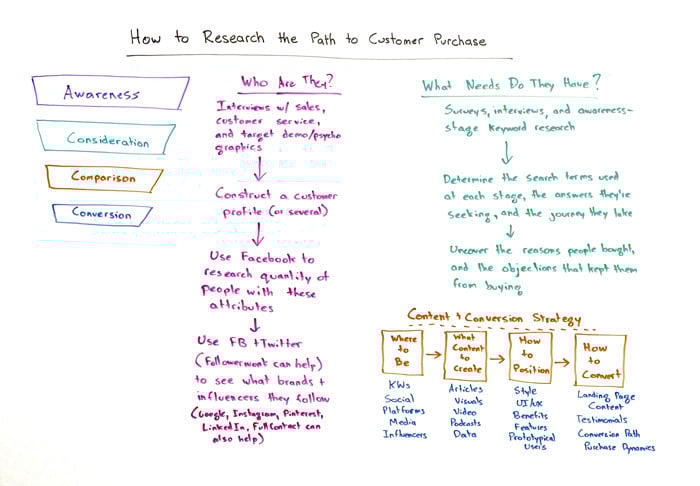 How to Research the Path to Customer Purchase
Awareness
Consideration
Comparison
Conversion
Who Are They?
Interviews w/ sales,
customer service,
and target demo/psycho
graphics
Construct a customer
profile (or several)
Use Facebook to
research quantity of
people with these
attributes
Use FB + Twitter
(Followerwonk can help)
to see what brands +
influencers they follow
(Google, Instagram, Pinterest,
LinkedIn, FullContact can
also help)
What Needs Do They Have?
Surveys, interviews, and awareness-
stage keyword research
Determine the search terms used
at each stage, the answers they're
seeking, and the journey they take
Uncover the reasons people bought,
and the objections that kept them
from buying
Content + Conversion Strategy
Where
to
Be
KWs
Social
Platforms
Media
Influencers
What
Content
to
Create
Articles
Visuals
Video
Podcasts
Data
How
to
Position
Style
UI/UX
Benefits
Features
Prototypical
Users
How
to
Convert
Landing Page
Content
Testimonials
Conversion Path
Purchase Dynamics